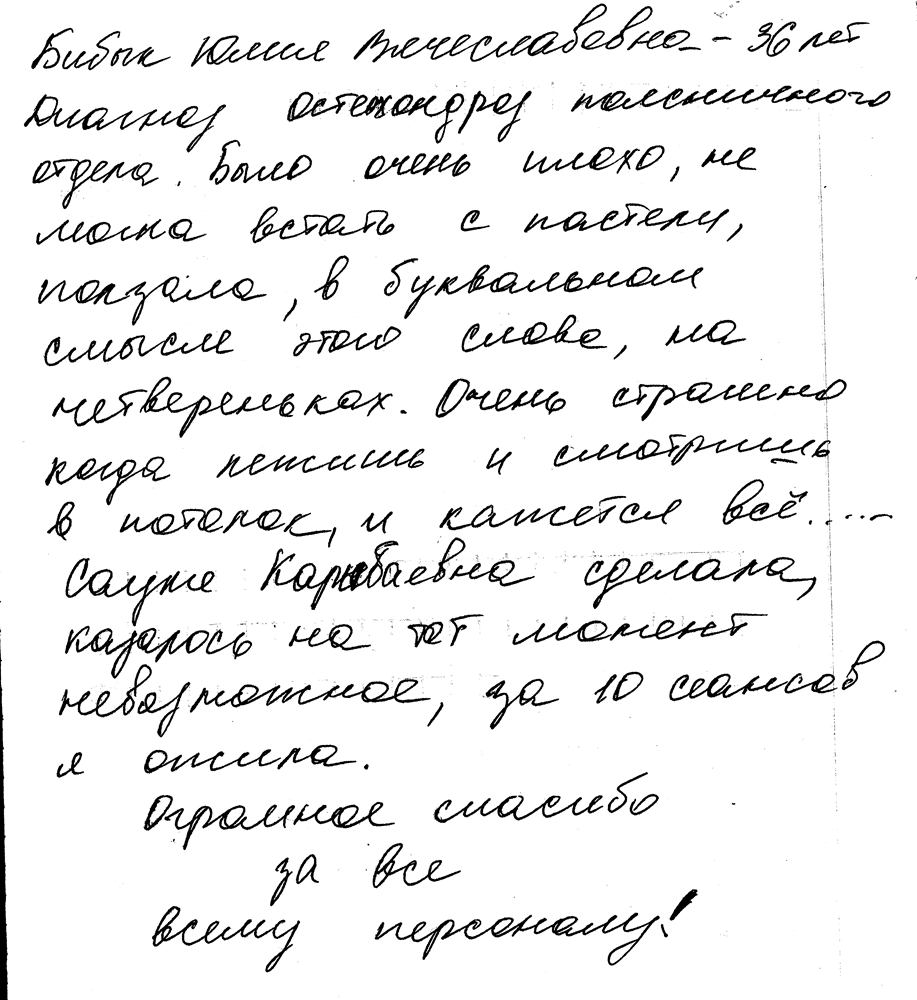 Бибык Юлия Вячеславовна - 36 лет
Диагноз остехондроз поясничного
отдела. Было очень плохо, не
могла встать с пастели,
ползала, в буквальном
смысле этого слова, на
четвереньках. Очень страшно
когда лежишь и смотришь
в потолок, и кажется всё.....
Сауле Карибаевна сделала,
казалось на тот момент
невозможное, за 10 сеансов
я ожила.
Огромное спасибо
за все
всему персоналу!